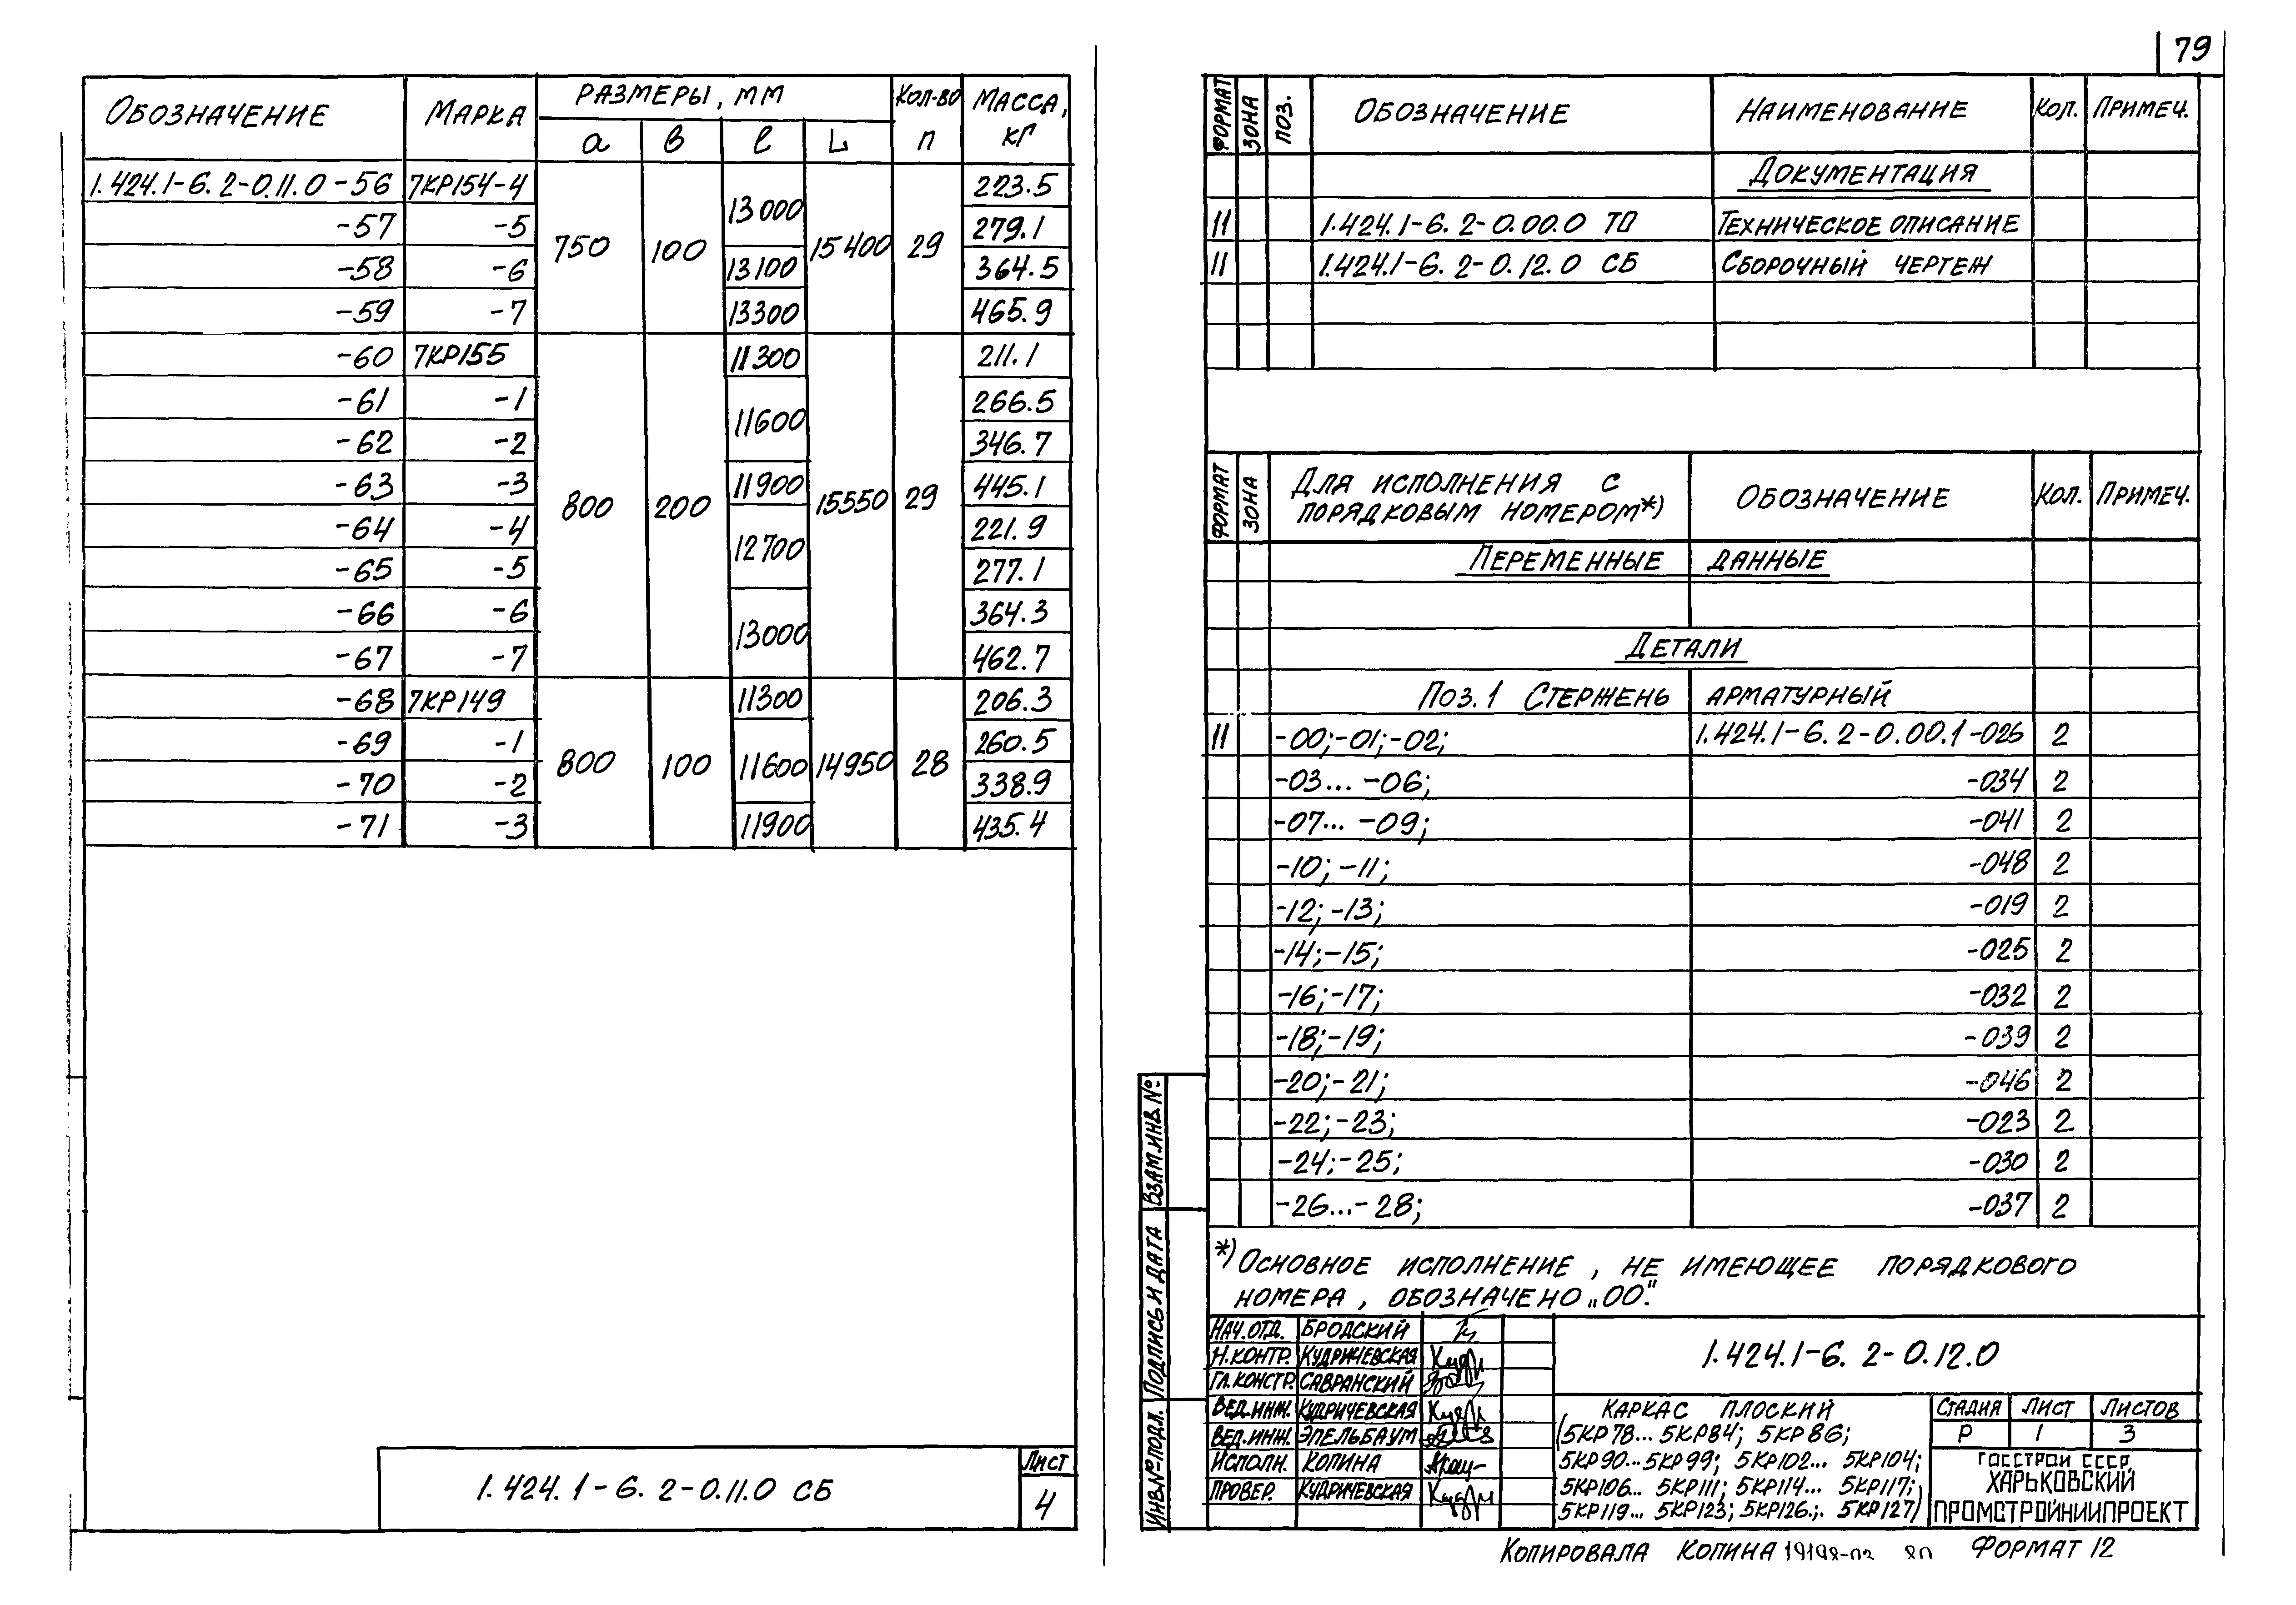 79
ОБОЗНАЧЕНИЕ МАРКА РАЗМЕРЫ, ММ КОЛ-ВО МАССА, КГ
а в ℓ L п
1.424.1-6. 2-0.11.0 -56 7КР154-4 750 100 13000 15400 29 223.5
-57 -5 279.1
-58 -6 13100 364.5
-59 -7 13300 465.9
-60 7КР155 800 200 11300 15550 29 211.1
-61 -1 11600 266.5
-62 -2 346.7
-63 -3 11900 445.1
-64 -4 12700 221.9
-65 -5 277.1
-66 -6 13000 364.3
-67 -7 462.7
-68 7КР149 800 100 11300 14950 28 206.3
-69 -1 11600 260.5
-70 -2 338.9
-71 -3 11900 435.4
1.424.1-6. 2-0.11.0 СБ
ЛИСТ
4
ФОРМАТ ЗОНА ПОЗ. ОБОЗНАЧЕНИЕ НАИМЕНОВАНИЕ КОЛ. ПРИМЕЧ.
ДОКУМЕНТАЦИЯ
11 1.424.1-6. 2-0.00.0 ТО ТЕХНИЧЕСКОЕ ОПИСАНИЕ
11 1.424.1-6. 2-0.12.0 СБ СБОРОЧНЫЙ ЧЕРТЕЖ
ФОРМАТ ЗОНА ДЛЯ ИСПОЛНЕНИЯ С ПОРЯДКОВЫМ НОМЕРОМ*) ОБОЗНАЧЕНИЕ КОЛ. ПРИМЕЧ.
ПЕРЕМЕННЫЕ ДАННЫЕ
ДЕТАЛИ
ПОЗ.1 СТЕРЖЕНЬ АРМАТУРНЫЙ
11 -00;-01;-02; 1.424.1-6. 2-0.00.1-026 2
-03... -06; -034 2
-07... -09; -041 2
-10; -11; -048 2
-12; -13; -019 2
-14;-15; -025 2
-16;-17; -032 2
-18;-19; -039 2
-20;-21; -046 2
-22;-23; -023 2
-24;-25; -030 2
-26...-28; -037 2
*) ОСНОВНОЕ ИСПОЛНЕНИЕ, НЕ ИМЕЮЩЕЕ ПОРЯДКОВОГО
НОМЕРА, ОБОЗНАЧЕНО „00".
ИНВ.№ ПОДЛ. ПОДПИСЬ И ДАТА ВЗАМ.ИНВ.№
НАЧ.ОТД. БРОДСКИЙ
Н.КОНТР. КУДРИЧЕВСКАЯ
ГЛ.КОНСТР. САВРАНСКИЙ
ВЕД.ИНЖ. КУДРИЧЕВСКАЯ
ВЕД.ИНЖ. ЭПЕЛЬБАУМ
ИСПОЛН. КОПИНА
ПРОВЕР. КУДРИЧЕВСКАЯ
1.424.1-6. 2-0.12.0
КАРКАС ПЛОСКИЙ
(5КР78... 5КР84; 5КР86;
5КР90...5КР99; 5КР102... 5КР104;
5КР106... 5КР111; 5КР114... 5КР117;
5КР119... 5КР123; 5КР126.;. 5КР127)
СТАДИЯ ЛИСТ ЛИСТОВ
Р 1 3
ГОССТРОЙ СССР
ХАРЬКОВСКИЙ
ПРОМСТРОЙНИИПРОЕКТ
КОПИРОВАЛА КОПИНА 19198-02 80 ФОРМАТ 12